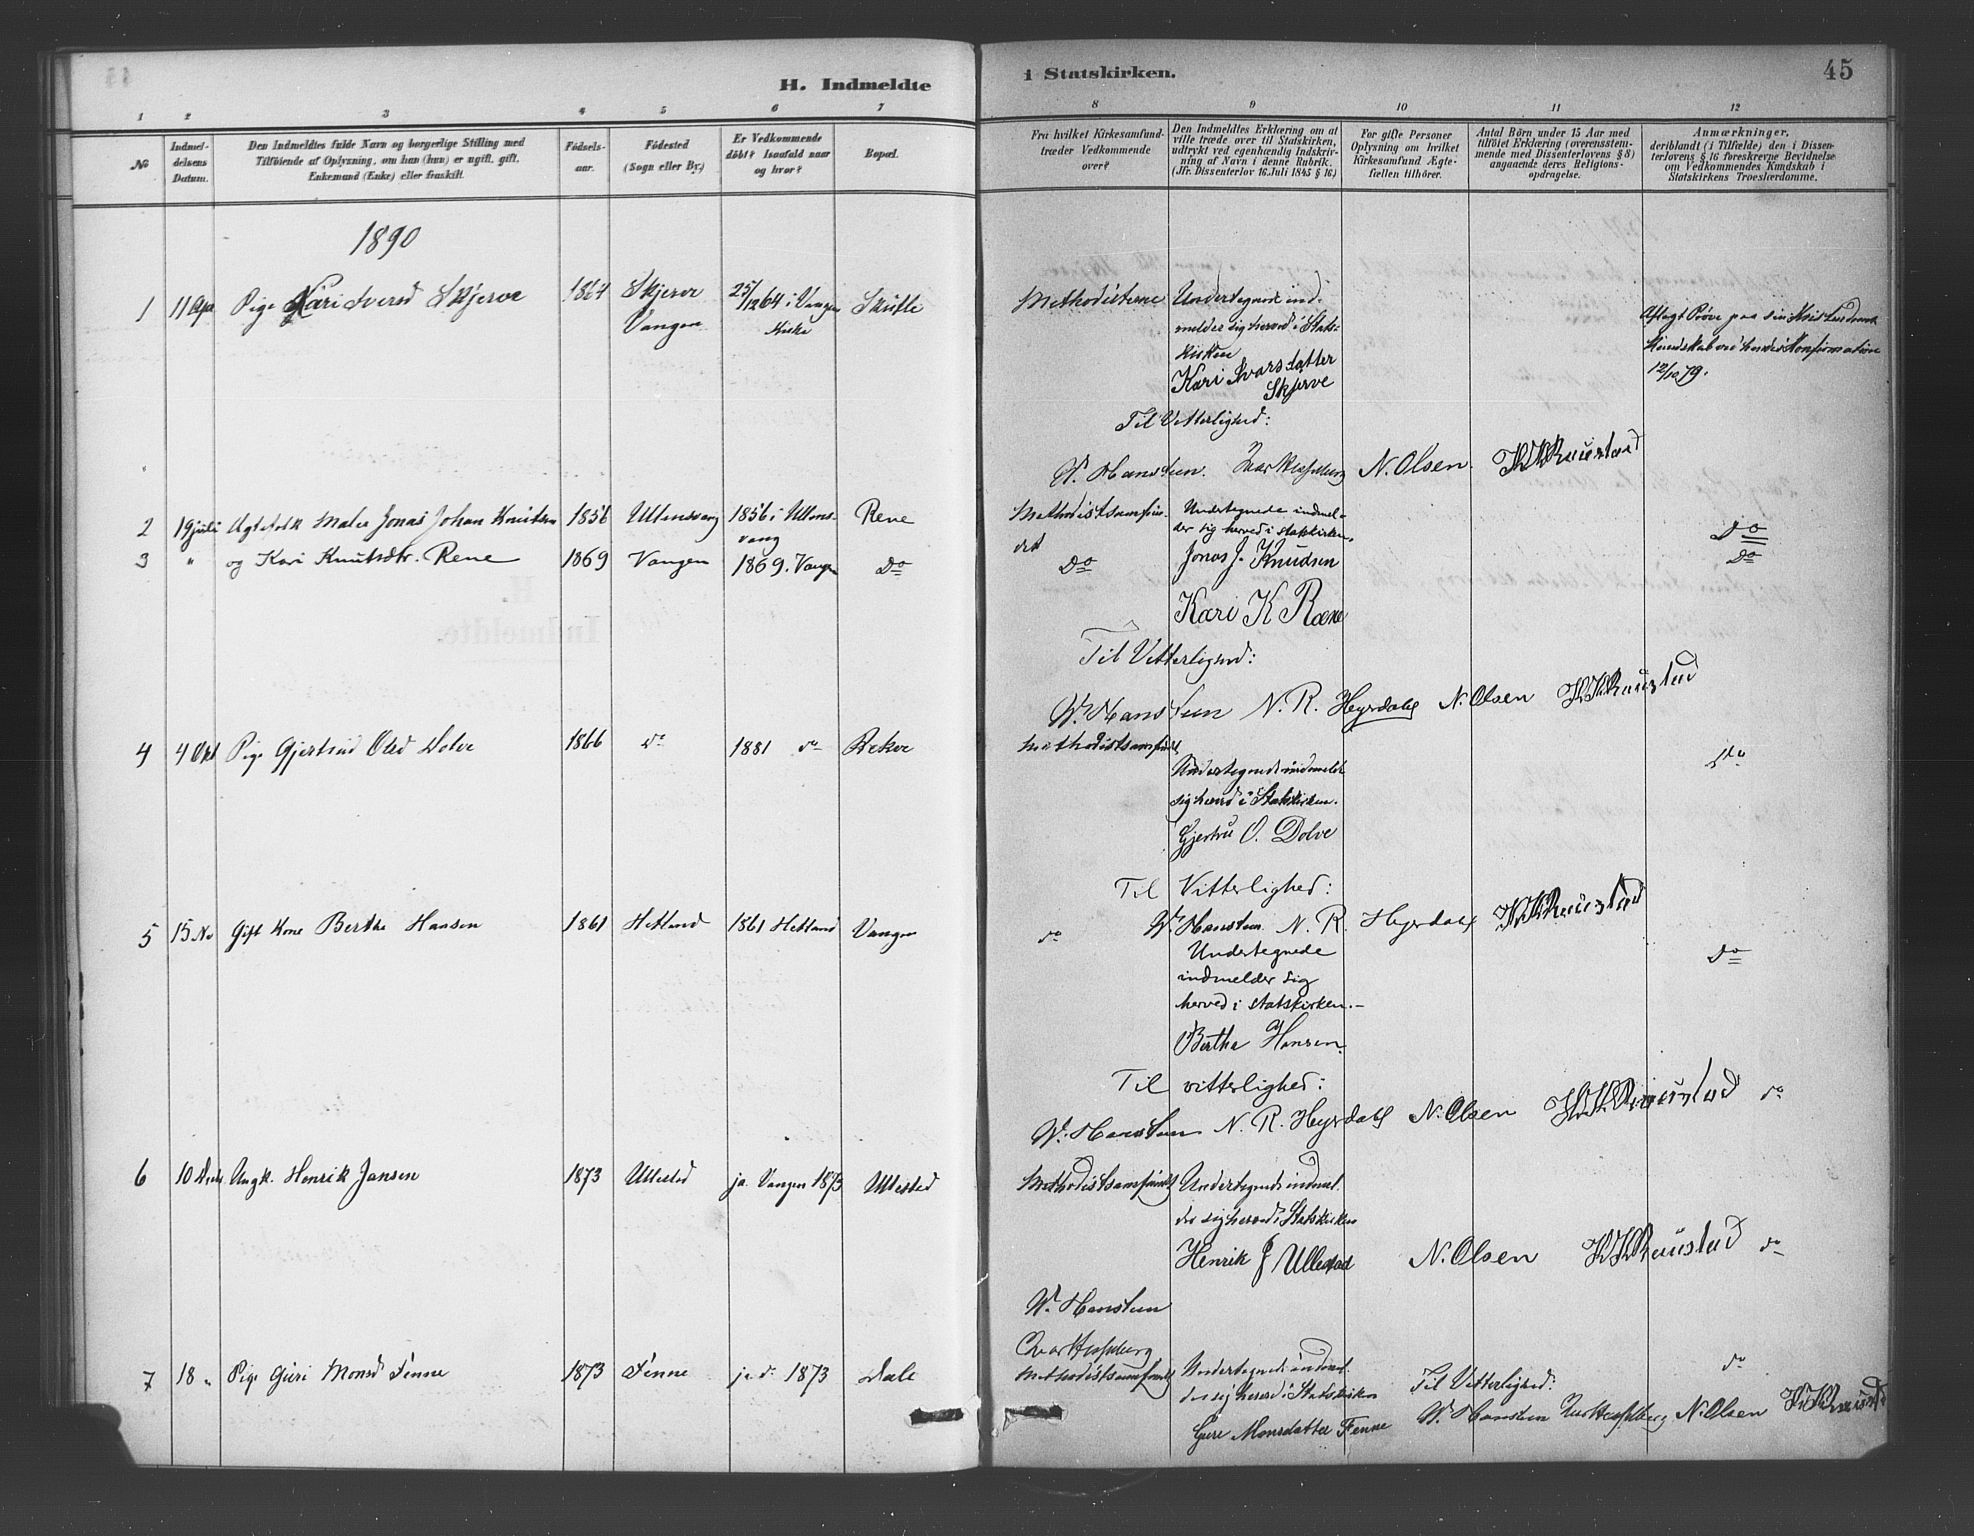 H. Indmeldte
i Statskirken.
45
1 2 3 4 5 6 7 8 9 10 11 12
No
Indmel-
delsens
Datum.
Den Indmeldtes fulde Navn og borgerlige Stilling med
Tilföiende af Oplysning, om han (hun) er ugift, gift,
Enkemand (Enke) eller fraskilt.
Födsels-
aar.
Födested
(Sogn eller By.)
Er Vedkommende
döbt? Isaafald naar
og hvor?
Bopæl.
Fra hvilket Kirkesamfund
træder Vedkommende
over?
Den Indmeldtes Erklæring om at
ville træde over til Statskirken,
udtrykt ved egenhændig Indskriv-
ning af Navn i denne Rubrik.
(Jfr. Dissenterlov 16. Juli 1845 § 16.)
For gifte Personer
Oplysning om hvilket
Kirkesamfund Ægte-
fællen tilhörer.
Antal Börn under 15 Aar med
tilföiet Erklæring (overensstem-
mende med Dissenterlovens § 8)
angaaende deres Religions-
opdragelse.
Anmærkninger,
deriblandt (i Tilfælde) den i Dissen-
terlovens § 16 foreskrevne Bevidnelse
om Vedkommendes Kundskab i
Statskirkens Troeslærdomme.
1890
1 11 Apr Pige Kari Iversd Skjerve 1864 Skjerve
Vangen
25/12 64 i Vangen
Kirke
Skutle
Methodisterne
Undertegnede ind-
melder sig herved i Stats-
kirken
Kari Ivarsdatter
Skjerve
Aflagt Prøve paa sin Kristendoms
Kundskab ved hendes Konfirmation
12/10 79.
Til Vitterlighed:
W. Hansteen. N. Olsen. K K Raustad
2 19 juli Ægtefolk Maler Jonas Johan Knutsen 1856 Ullensvang 1856 i Ullens-
vang
Rene
Methodistsamfun-
det
Undertegnede indmel-
der sig herved i statskirken.
Jonas J. Knudsen
Do
3 " og Kari Knutsdtr. Rene 1869 Vangen 1869. Vangen Do Do
Kari K Ræne
Do
Til Vitterlighed:
W. Hansteen N. R. Heyerdahl N. Olsen K K Raustad
4 4 Okt Pige Gjertrud Olsd Dolve 1866 do 1881 do Rekve Methodistsamfundet
Undertegnede indmelder
sig herved i Statskirken.
Gjertru O. Dolve
do
Til Vitterlighed:
W. Hansteen N. R. Heyerdahl K K Raustad
5 15 No Gift Kone Bertha Hansen 1861 Hetland 1861 Hetland Vangen do
Undertegnede
indmelder sig
herved i statskirken.-
Bertha Hansen.
do
Til vitterlighed:
W. Hansteen N. R. Heyerdahl N. Olsen K. K. Raustad do
6 10 Decbr Ungk. Henrik Jansen 1873 Ullestad ja Vangen 1873 Ullestad Methodistsamfundet
Undertegnede indmel-
der sig herved i Statskirken
Henrik J Ullestad N. Olsen K K Raustad do
W. Hansteen
7 18 " Pige Guri Monsd Finne 1873 Finne ja do 1873 Dale Methodistsamfundet
Undertegnede indmel-
der sig herved i Statskirken
Guri Monsdatter Finne
Til Vitterlighed:
W. Hansteen N. Olsen K K Raustad
do